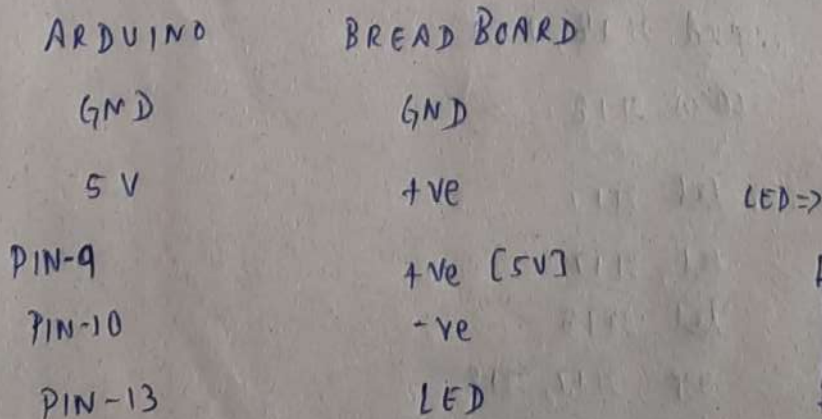 ARDUINO BREAD BOARD
GND GND
5 V +ve LED=>
PIN-9 +ve [5V]
PIN-10 -ve
PIN-13 LED